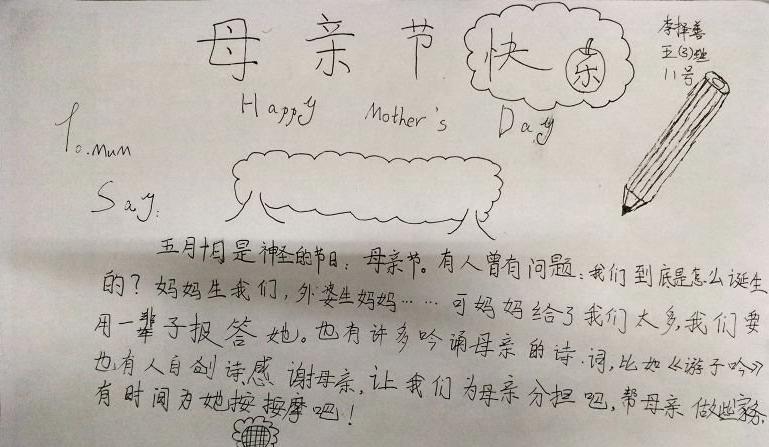 母亲节快乐
李择善
五(3)班
11号
Happy Mother's Day
To.mum
Say:
五月十日是神圣的节日：母亲节。有人曾有问题：我们到底是怎么诞生
的？妈妈生我们，外婆生妈妈……可妈妈给了我们太多，我们要
用一辈子报答她。也有许多吟诵母亲的诗.词，比如《游子吟》
也有人自创诗，感谢母亲，让我们为母亲分担吧，帮母亲做些家务，
有时间为她按按摩吧！